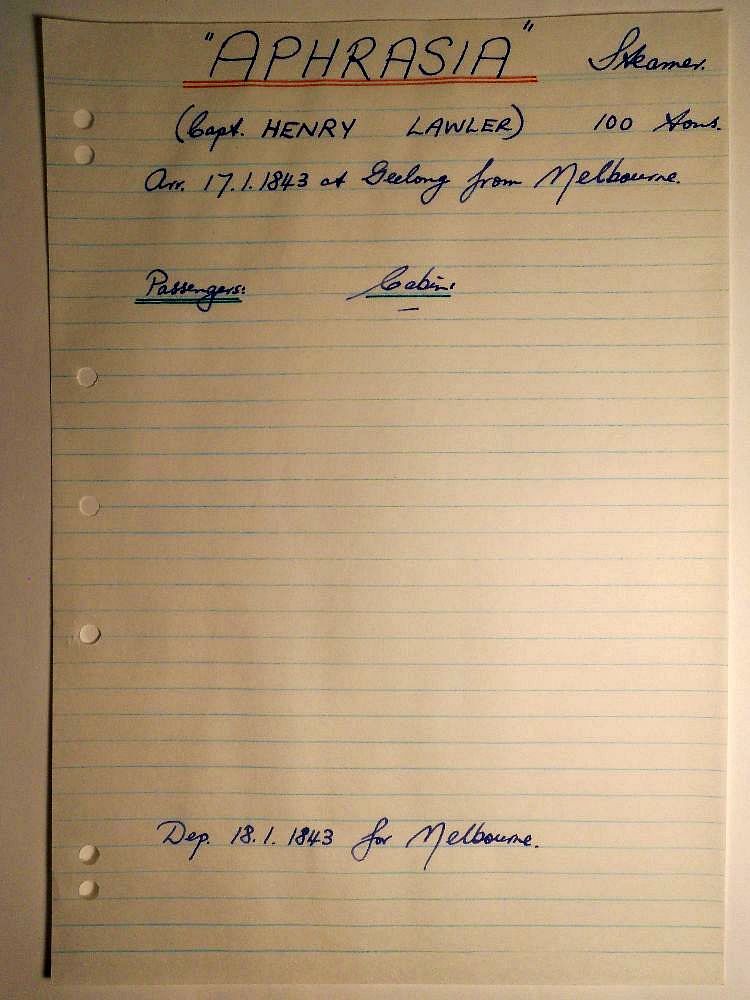 "APHRASIA" Steamer.
(Capt. HENRY LAWLER) 100 tons.
Arr. 17.1.1843 at Geelong from Melbourne.
Passengers: Cabin:
Dep. 18.1.1843 for Melbourne.